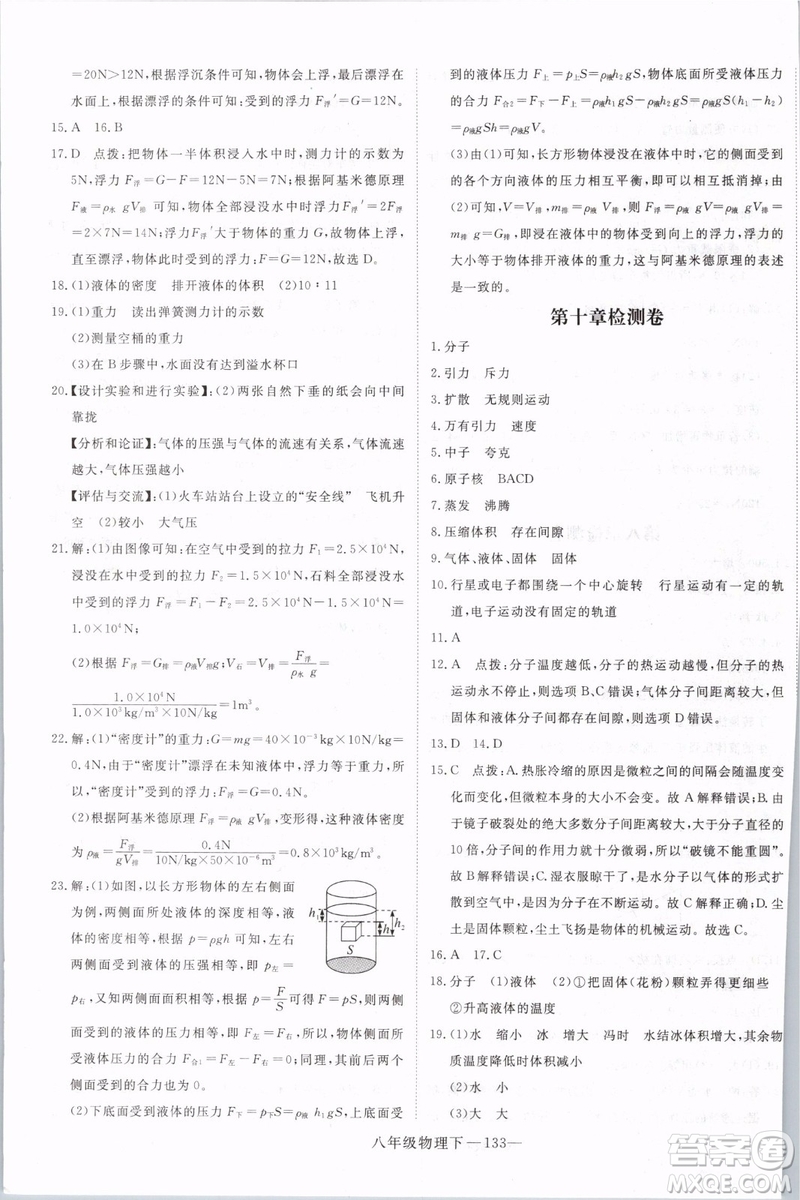 =20N>12N,根据浮沉条件可知,物体会上浮,最后漂浮在
水面上,根据漂浮的条件可知:受到的浮力 F浮′=G=12N。
15. A　16. B
17. D　点拨:把物体一半体积浸入水中时,测力计的示数为
5N,浮力 F浮=G-F=12N-5N=7N;根据阿基米德原理
F浮=ρ水 gV排 可知,物体全部浸没水中时的浮力 F浮′=2F浮
=2×7N=14N;浮力 F浮′大于物体的重力 G,故物体上浮,
直至漂浮,此时受到的浮力=G=12N,故选 D。
18. (1)液体的密度　排开液体的体积　(2)10∶11
19. (1)重力　读出弹簧测力计的示数
(2)测量空桶的重力
(3)在 B 步骤中,水面没有到达溢水杯口
20.【设计实验和进行实验】:(2)两张自然下垂的纸会向中间
靠拢
【分析和论证】:气体的压强与气体的流速有关系,气体流速
越大,气体压强越小
【评估与交流】:(1)火车站站台上设立的“安全线”　飞机升
空　(2)较小　大气压
21. 解:(1)由图像可知:在空气中受到的拉力 F1=2.5×10⁴N,
浸没在水中受到的拉力 F2=1.5×10⁴N,石料全部浸没在
水中受到的浮力 F浮=F1-F2=2.5×10⁴N-1.5×10⁴N=
1.0×10⁴N;
(2)根据 F浮=ρ水 gV排得:V石=V排=F浮/ρ水 g=
1.0×10⁴N/1.0×10³kg/m³×10N/kg=1m³。
22. 解:(1)“密度计”的重力:G=mg=40×10⁻³kg×10N/kg=
0.4N,由于“密度计”漂浮在未知液体中,根据漂浮条件可
知,“密度计”受到的浮力为:F浮=G=0.4N。
(2)根据阿基米德原理 F浮=ρ液 gV排,变形得,这种液体密度
为:ρ液=F浮/gV排=0.4N/10N/kg×50×10⁻⁶m³=0.8×10³kg/m³。
23. 解:(1)如图,以长方形物体的左右侧面
为例,两侧面所处液体的深度相等,同一
液体的密度相等,根据 p=ρgh 可知,左右
两侧面受到液体的压强相等,即 p左=
p右,左右两侧面面积相等,根据 p=F/S可得 F=pS,则左右侧
面受到液体的压力相等,即 F左=F右,由于左右侧面受到的
液体的压力相互平衡,所以,长方形物体的左右两侧面受到
的合力 F合1=F左-F右=0;同理,其他两个侧面前后面,两
个侧面受到的合力也为 0。
(2)下底面受到液体的压力 F下=p下S=ρ液 h1gS,上底面受
到的液体压力 F上=p上S=ρ液h2 gS,物体底面所受液体压力
的合力 F合2=F下-F上=ρ液h1 gS-ρ液h2 gS=ρ液gS(h1-h2)
=ρ液gSh=ρ液gV。
(3)由(1)可知,长方形物体浸没在液体中时,它的侧面受到
的各个方向液体的压力相互平衡,即作用效果相互抵消;由
(2)可知,V=V排,则浮力 F浮=F合2=ρ液gV=ρ液gV排=
m排 g=G排,即浸在液体中的物体受到向上的浮力,浮力的
大小等于物体排开液体的重力,这与阿基米德原理的表述
是一致的。
第十章检测卷
1. 分子
2. 引力　斥力
3. 扩散　无规则运动
4. 万有引力　速度
5. 中子　夸克
6. 原子核　BACD
7. 蒸发　沸腾
8. 压缩体积　存在间隙
9. 气体、液体、固体　固体
10. 行星或电子都围绕一个中心旋转　行星运动有一定的轨
道,电子运动没有固定的轨道
11. A
12. A　点拨:分子温度越低,分子的热运动越慢,但分子的热运
动永不停止,则选项 B、C 错误;气体分子间存在间隙,但
固体和液体的分子间都存在间隙,则选项 D 错误。
13. D　14. D
15. C　点拨:A. 热胀冷缩的原因是微粒之间的间隔会随温度变
化而变化,但微粒本身的大小不变。故 A 解释错误;B. 由
于镜子破裂处的绝大多数分子间距离大于分子直径的
10 倍,分子间的作用力就十分微弱,所以“破镜不能重圆”。
故 B 解释错误;C. 湿衣服晾干了,是水分子从一点一点扩
散到空气中,是因为分子在不断运动。故 C 正确;D. 尘
土是固体颗粒,尘土飞扬是物体的机械运动。故选 C。
16. A　17. C
18. 分子　(1)液体　(2)①把固体(花粉)颗粒弄得更细些
②升高液体的温度
19. (1)水　缩小　冰　增大　冯时　水结冰体积增大,其余物
质温度降低时体积减小
(2)水　小
(3)大　大
h1
h
h2
S
八年级物理下—133—
答案圈
MXQE.COM